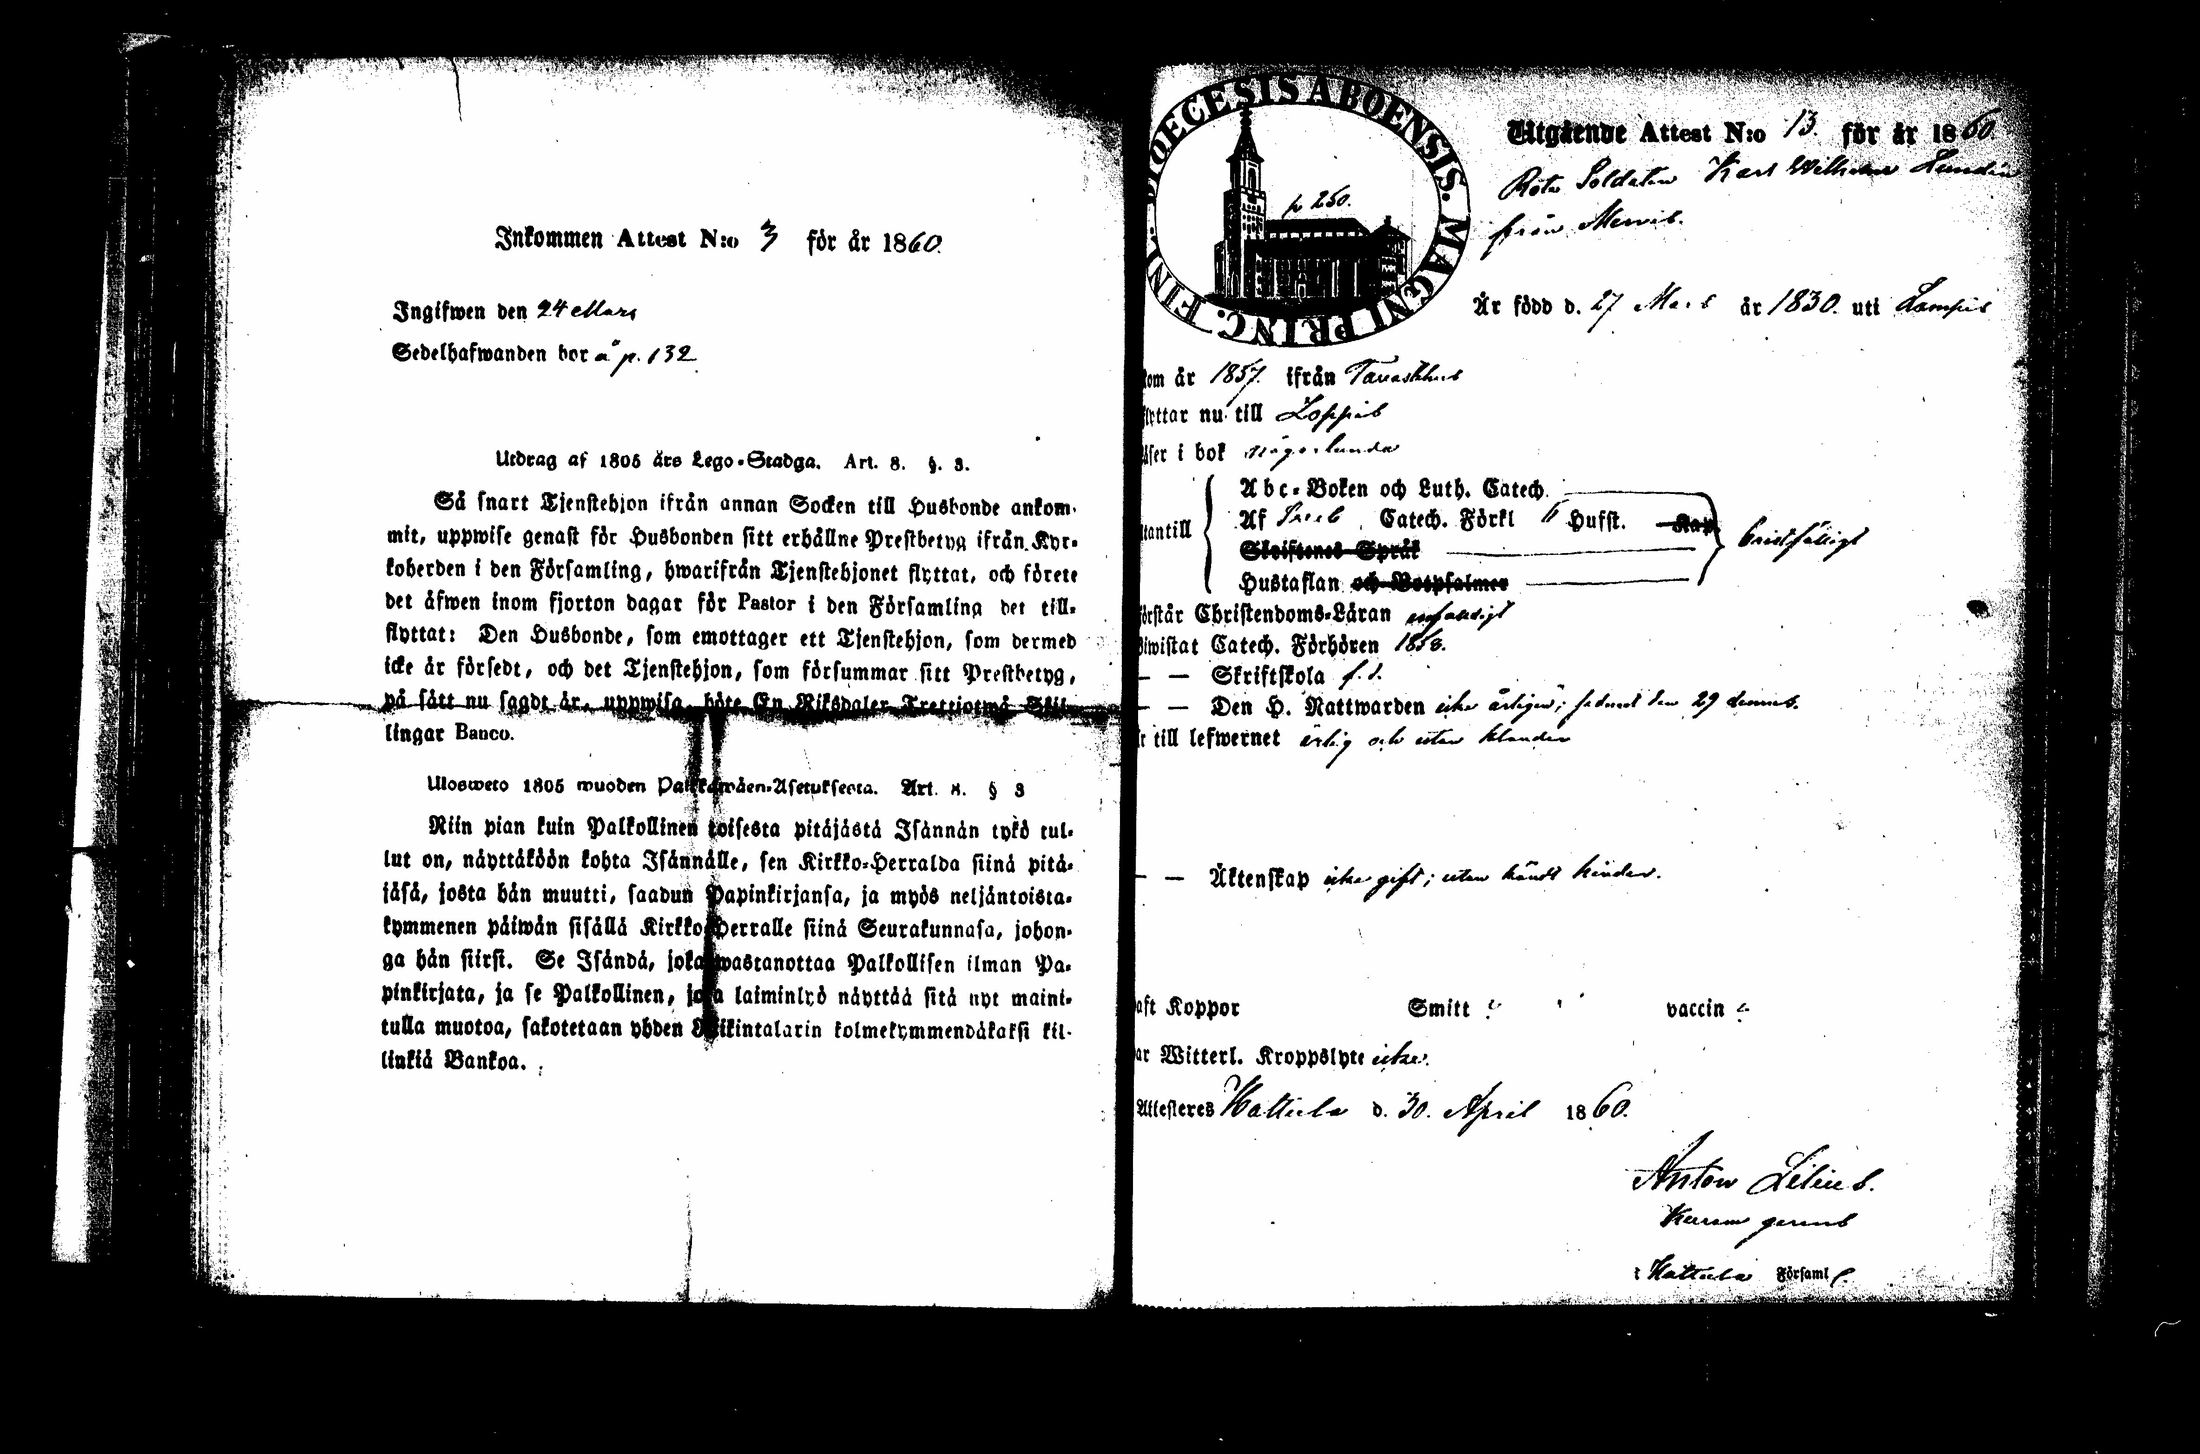 Inkommen Attest N:o 3 för år 1860.
Ingifwen den 24 Mars
Sedelhafwanden bor å p. 132
Utdrag af 1805 års Lego-Stadga. Art. 8. §. 3.
Så snart Tjenstehjon ifrån annan Socken till Husbonde ankom-
mit, uppwise genast för Husbonden sitt erhållne Prestbetyg ifrån Kyr-
koherden i den Församling, hwarifrån Tjenstehjonet flyttat, och förete
det äfwen inom fjorton dagar för Pastor i den Församling det till-
flyttat: Den Husbonde, som emottager ett Tjenstehjon, som dermed
icke är försedt, och det Tjenstehjon, som försummar sitt Prestbetyg,
på sätt nu sagdt är, uppwisa, böte En Riksdaler Trettiotwå Skil-
lingar Banco.
Ulosweto 1805 wuoden Palkkawäen-Asetuksesta. Art. 8. § 3
Niin pian kuin Palkollinen toisesta pitäjästä Isännän tykö tul-
lut on, näyttäköön kohta Isännälle, sen Kirkko-Herralda siinä pitä-
jäsä, josta hän muutti, saadun Papinkirjansa, ja myös neljäntoista-
kymmenen päiwän sisällä Kirkko-Herralle siinä Seurakunnasa, johon-
ga hän siirsi. Se Isändä, joka wastanottaa Palkollisen ilman Pa-
pinkirjata, ja se Palkollinen, joka laiminlyö näyttää sitä nyt maini-
tulla muotoa, sakotetaan yhden Riikintalarin kolmekymmendäkaksi kil-
linkiä Bankoa.
DIOECESIS ABOENSIS. MAGNI PRINC. FINL.
p 250.
Utgående Attest N:o 13 för år 1860
Rote Soldaten Karl Wilhelm Lundin
från Mervis.
Är född d. 27 Mars år 1830. uti Lampis
kom år 1857. ifrån Tavastehus
flyttar nu till Loppis
läser i bok någorlunda
Abc-Boken och Luth. Catech.
utantill Af Sveb. Catech. Förkl 6 Hufst. Kap. bristfälligt
Skriftenes Språk
Hustaflan och Botpsalmer
förstår Christendoms-Läran enfaldigt
Biwistat Catech. Förhören 1858.
— — Skriftskola f. d.
— — Den H. Nattwarden icke årligen; sednast den 29 dennes.
är till lefwernet ärlig och utan klander
— — Äktenskap icke gift; utan kändt hinder.
haft Koppor Smitt vaccin
har Witterl. Kroppslyte icke.
Attesteres Hattula d. 30. April 1860.
Anton Lilius.
i Hattula Församl.